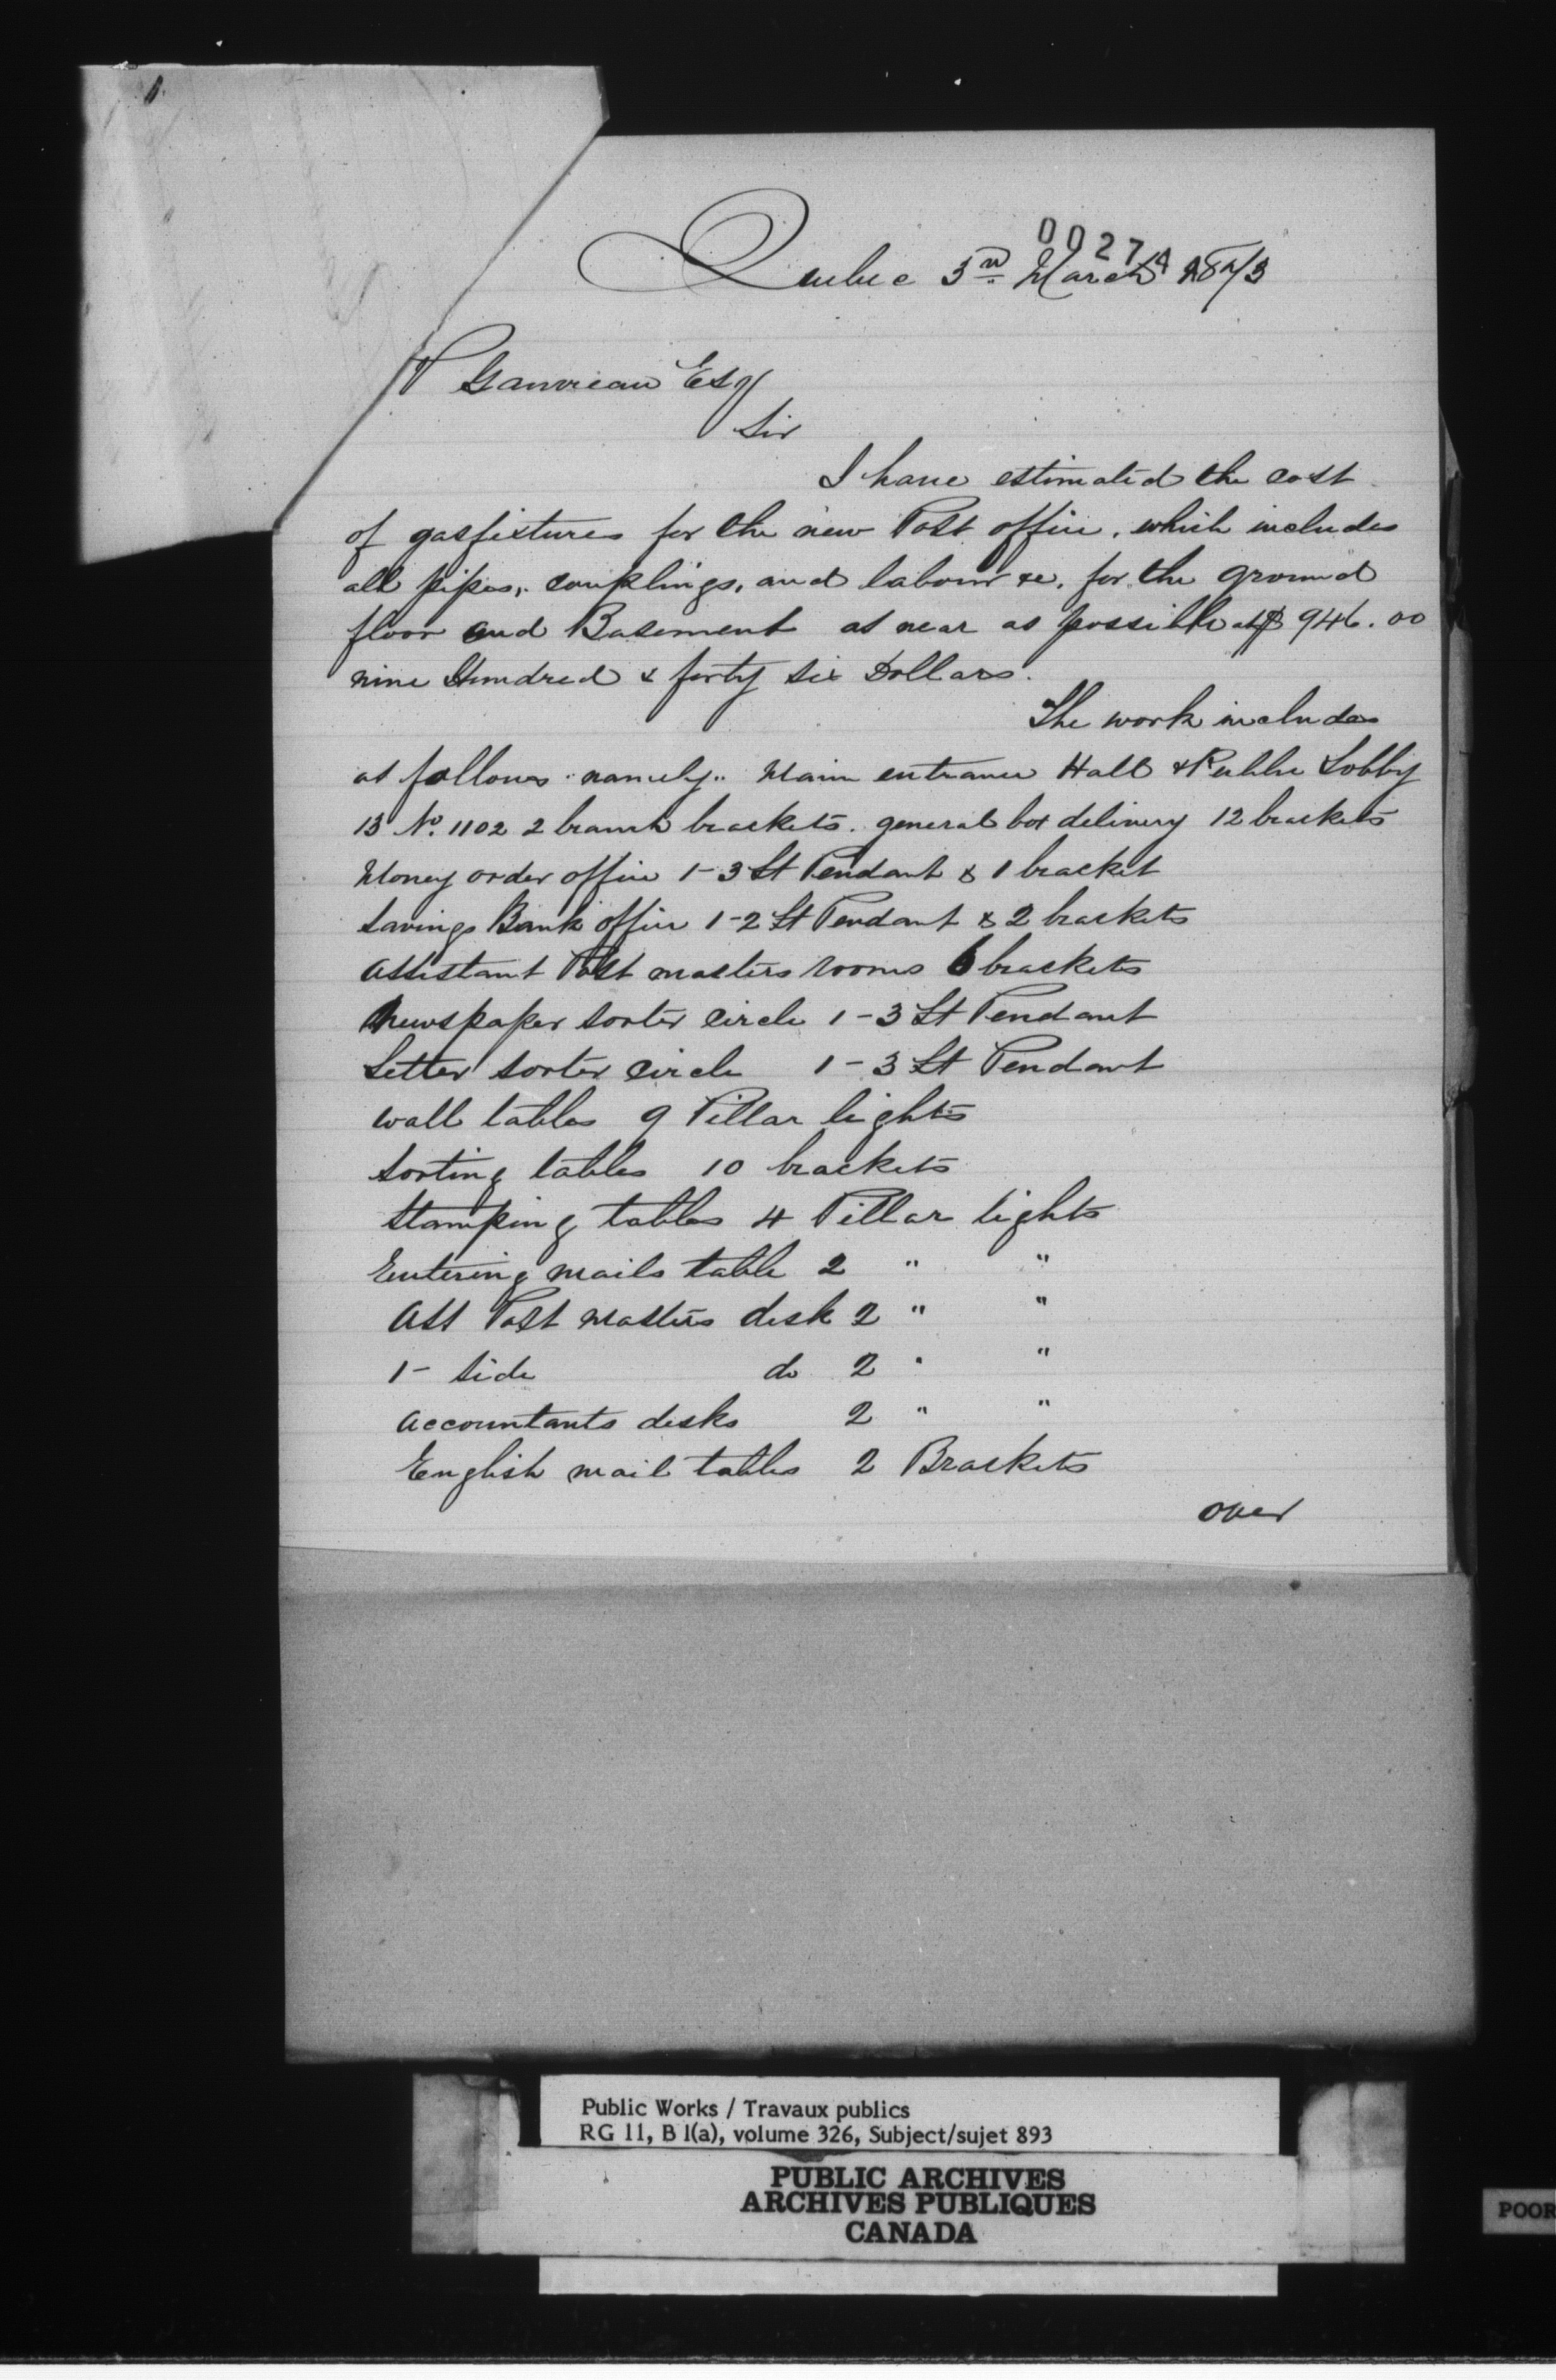 00274
Quebec 3rd March 1873
P Gauvreau Esqr
Sir
I have estimated the cost
of gasfixtures for the new Post office, which includes
all pipes, couplings, and labour &c, for the ground
floor and Basement as near as possible at $ 946.00
nine Hundred & forty six Dollars.
The work includes
as follows "namely" Main entrance Hall & Public Lobby
13 No. 1102 2 branch brackets. general box delivery 12 brackets
Money order office 1-3 Lt Pendant & 1 bracket
Savings Bank office 1-2 Lt Pendant & 2 brackets
Assistant Post masters rooms 6 brackets
Newspaper sorter circle 1-3 Lt Pendant
Letter sorter circle 1-3 Lt Pendant
wall tables 9 Pillar lights
Sorting tables 10 brackets
Stamping tables 4 Pillar lights
Entering mails table 2 " "
Ast Post Masters desk 2 " "
1- Side do 2 " "
Accountants desks 2 " "
English mail tables 2 Brackets
over
Public Works / Travaux publics
RG 11, B 1(a), volume 326, Subject/sujet 893
PUBLIC ARCHIVES
ARCHIVES PUBLIQUES
CANADA
POOR